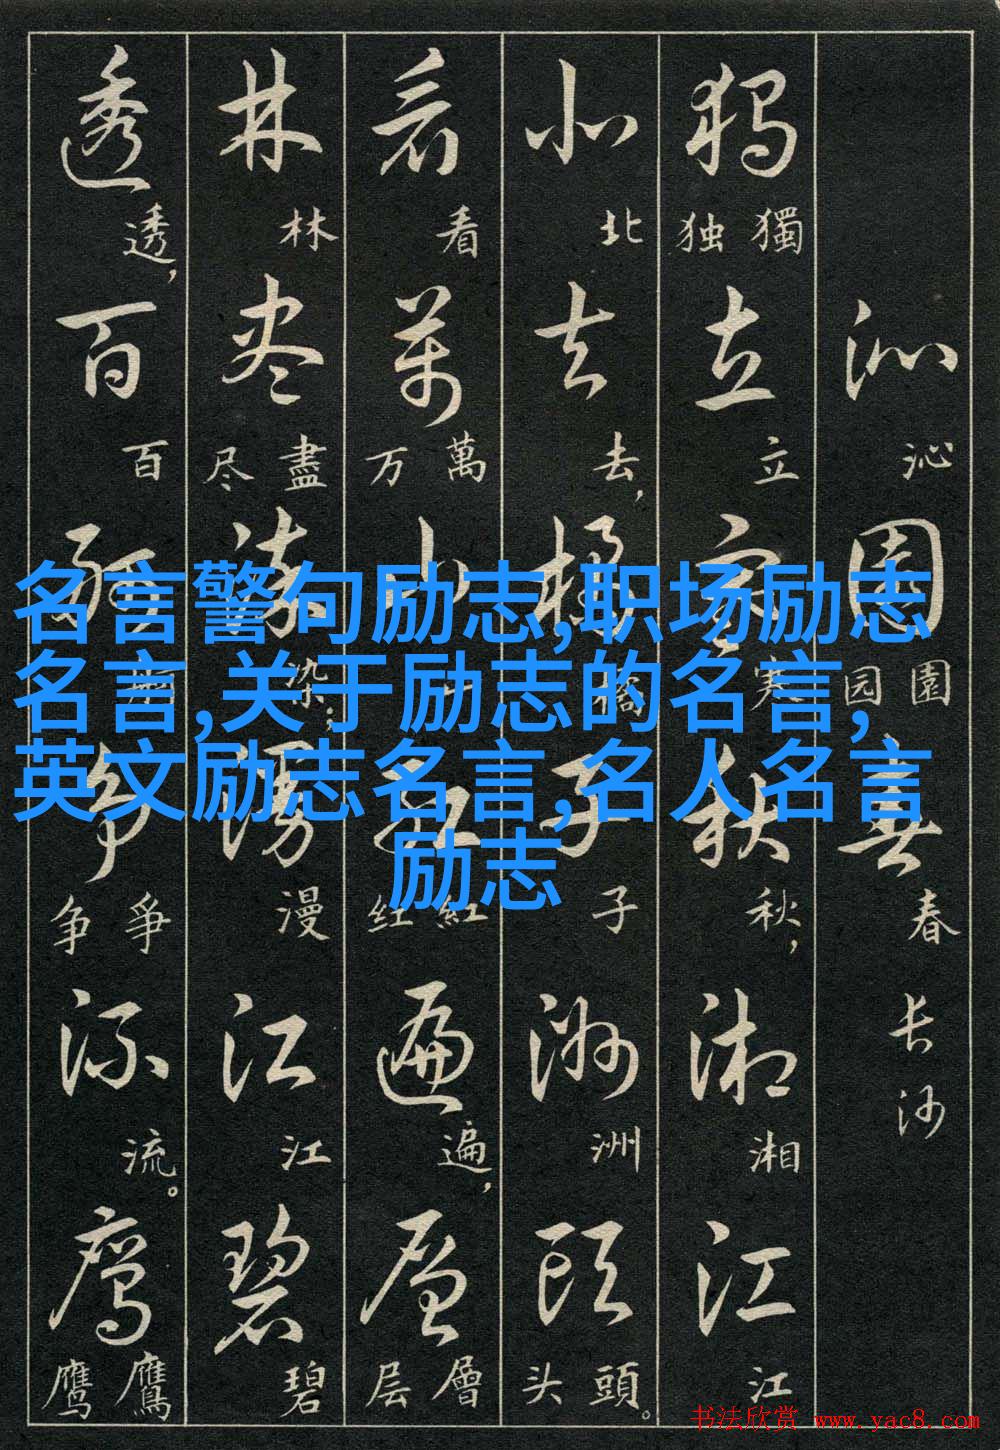 沁園春
沁 園园 春
长沙
獨立寒秋湘江
獨独 立 寒 秋, 湘 江
北去橘子洲頭
北 去, 橘 子 洲 頭头。
看萬山紅遍層
看 萬万 山 紅红 遍, 層层
林尽染漫江碧
林 盡尽 染; 漫 江 碧
透百舸争流鹰
透, 百 舸 爭争 流。 鷹鹰
名言警句励志,职场励志
名言,关于励志的名言,
英文励志名言,名人名言
励志
书法欣赏 www.yac8.com